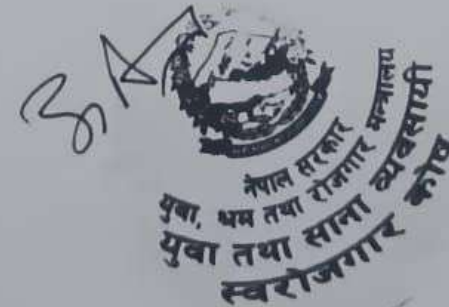 नेपाल सरकार
युवा, श्रम तथा रोजगार मन्त्रालय
युवा तथा साना व्यवसायी
स्वरोजगार कोष